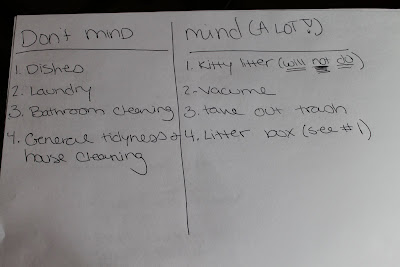 Don't mind
1. Dishes
2. Laundry
3. Bathroom cleaning
4. General tidyness &
house cleaning
mind (A LOT!)
1. Kitty litter (will not do)
2-Vacume
3. take out trash
4. Litter box (see #1)